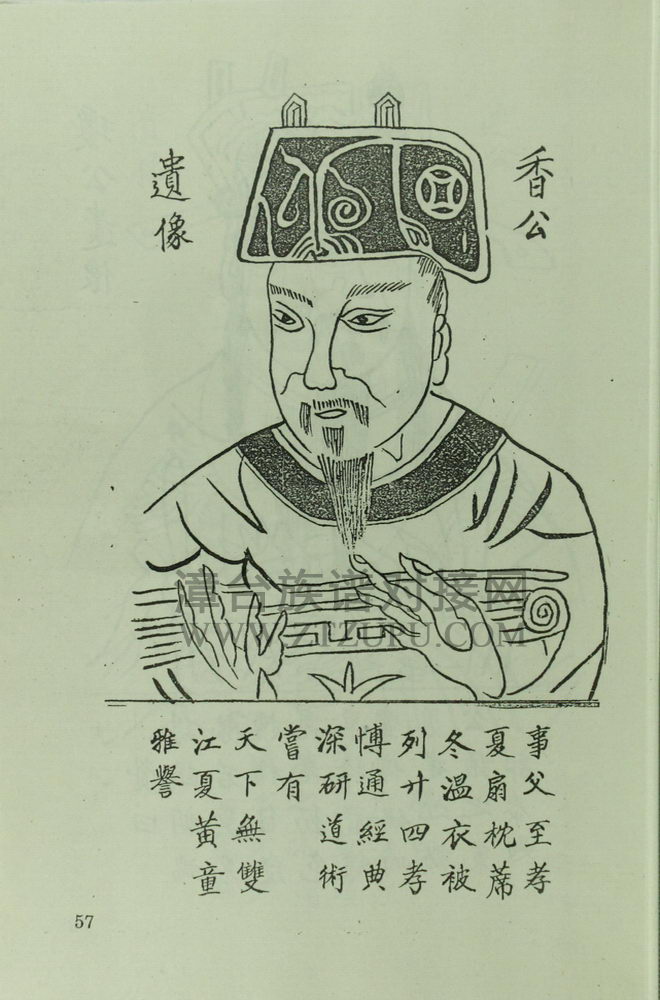 香公
遺像
事父至孝
夏扇枕蓆
冬溫衣被
列廿四孝
博通經典
深研道術
嘗有
天下無雙
江夏黃童
雅譽
57
漳台族谱对接网
WWW.ZTZUPU.COM